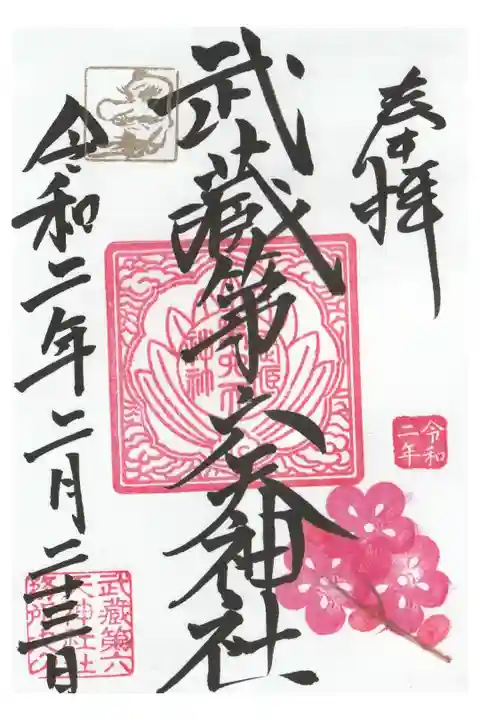 奉拝
武蔵第六天神社
令和二年二月二十三日
令和
二年
武蔵第六
天神社社